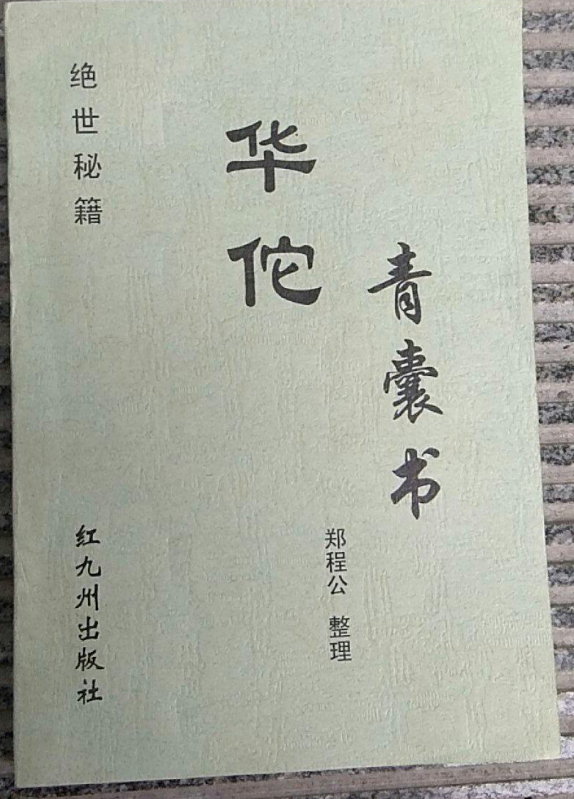 绝世秘籍
华佗
青囊书
郑程公 整理
红九州出版社